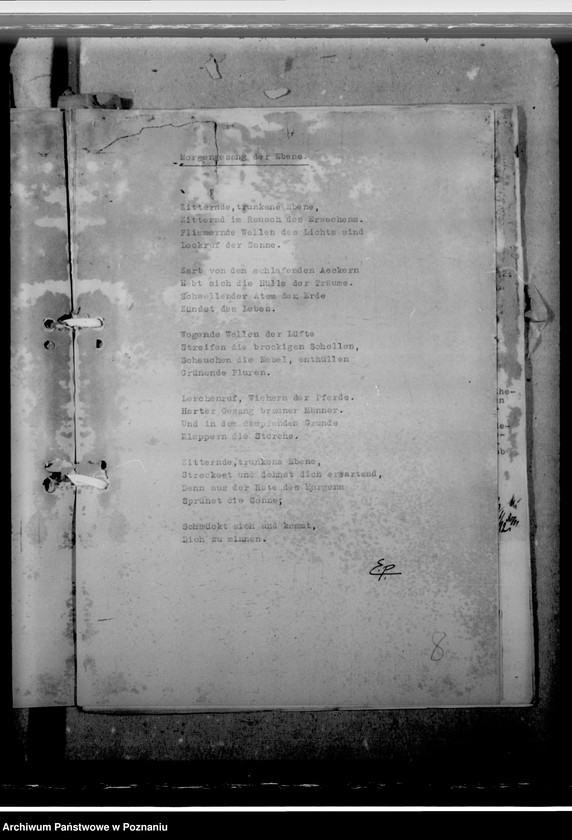 Morgengesang der Ebene.
Zitternde, trunkene Ebene,
Zitternd im Rausch des Erwachens.
Flimmernde Wellen des Lichts sind
Lockruf der Sonne.
Zart von den schlafenden Aeckern
Hebt sich die Hülle der Träume.
Schwellender Atem der Erde
Kündet das Leben.
Wogende Wellen der Lüfte
Streifen die brockigen Schollen,
Scheuchen die Nebel, enthüllen
Grünende Fluren.
Lerchenruf, Wiehern der Pferde.
Harter Gesang brauner Männer.
Und in dem dampfenden Grunde
Klappern die Störche.
Zitternde, trunkene Ebene,
Streckest und dehnst dich erwartend,
Denn aus der Röte des Morgens
Sprühet die Sonne;
Schmückt sich und kommt,
Dich zu minnen.
E.P.
8
Archiwum Państwowe w Poznaniu